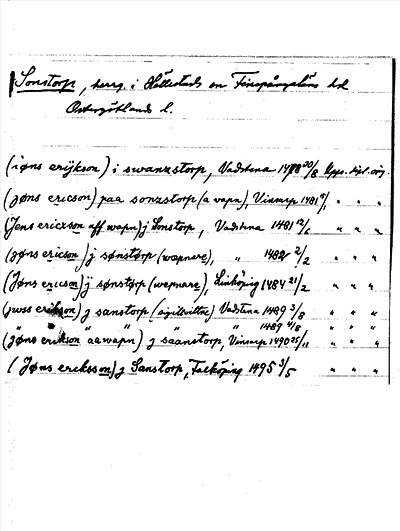 Sonstorp, herrg. i Hällestads sn Finspångaläns hd
Östergötlands l.
(iøns erijkson) i swanzstorp, Vadstena 1478 20/8 Upps. dipl. orig.
(jøns ericson) paa sonzstorp (a vapn), Vinstorp 1481 8/1 " " "
(Jens ericxson aff wapn) j Sonstorp, Vadstena 1481 12/6 " " "
(jøns ericson) j sønstorp (wæpnere), " 1482 2/2 " " "
(Jøns ericson) j sønstorp (wepnare), Linköping 1484 21/2 " " "
erikson) j sanstorp Vadstena 1489 3/8 " " "
" " " " 1489 4/8 " " "
(jøns erikson aa wapn) j saanstorp, Vinstorp 1490 25/11 " " "
(Jøns eriksson) j Sanstorp, Falköping 1495 3/5 " " "